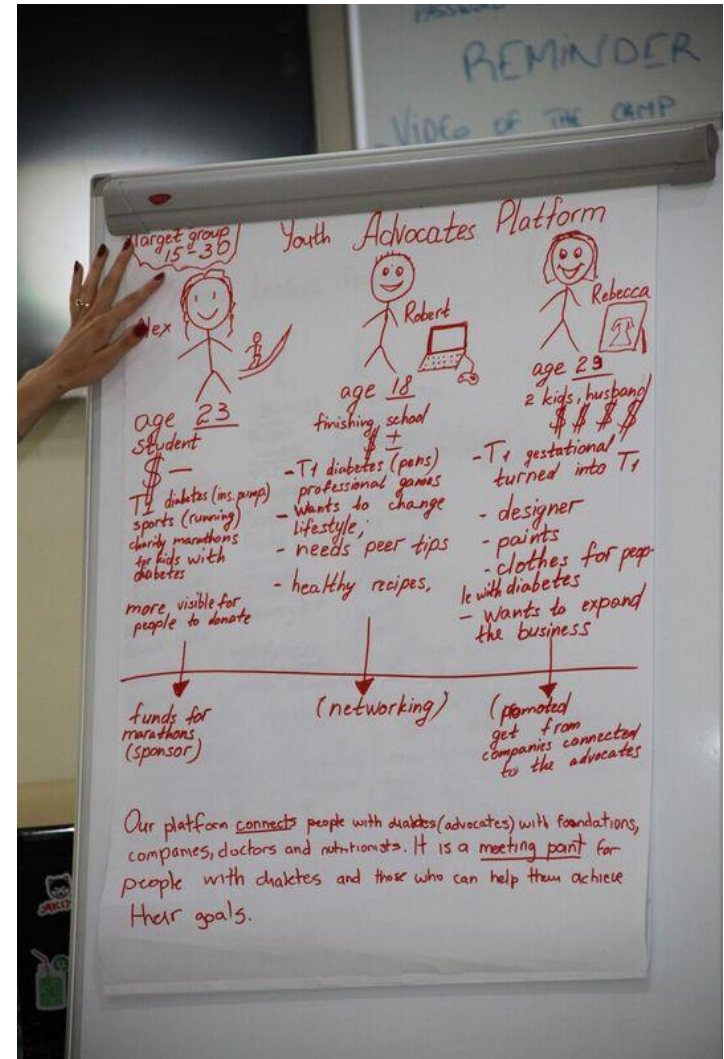 REMINDER
VIDEO OF THE CAMP
Target group
15-30
Youth Advocates Platform
Alex
age 23
student
$ —
T1 diabetes (ins. pump)
sports (running)
charity marathons
for kids with
diabetes
more visible for
people to donate
funds for
marathons
(sponsor)
Robert
age 18
finishing school
$ ±
- T1 diabetes (pens)
professional games
- wants to change
lifestyle;
- needs peer tips
- healthy recipes,
(networking)
Rebecca
age 29
2 kids, husband
$ $ $ $
- T1 gestational
turned into T1
- designer
- paints
- clothes for peop-
le with diabetes
- wants to expand
the business
(promoted
get from
companies connected
to the advocates
Our platform connects people with diabetes (advocates) with foundations,
companies, doctors and nutritionists. It is a meeting point for
people with diabetes and those who can help them achieve
their goals.